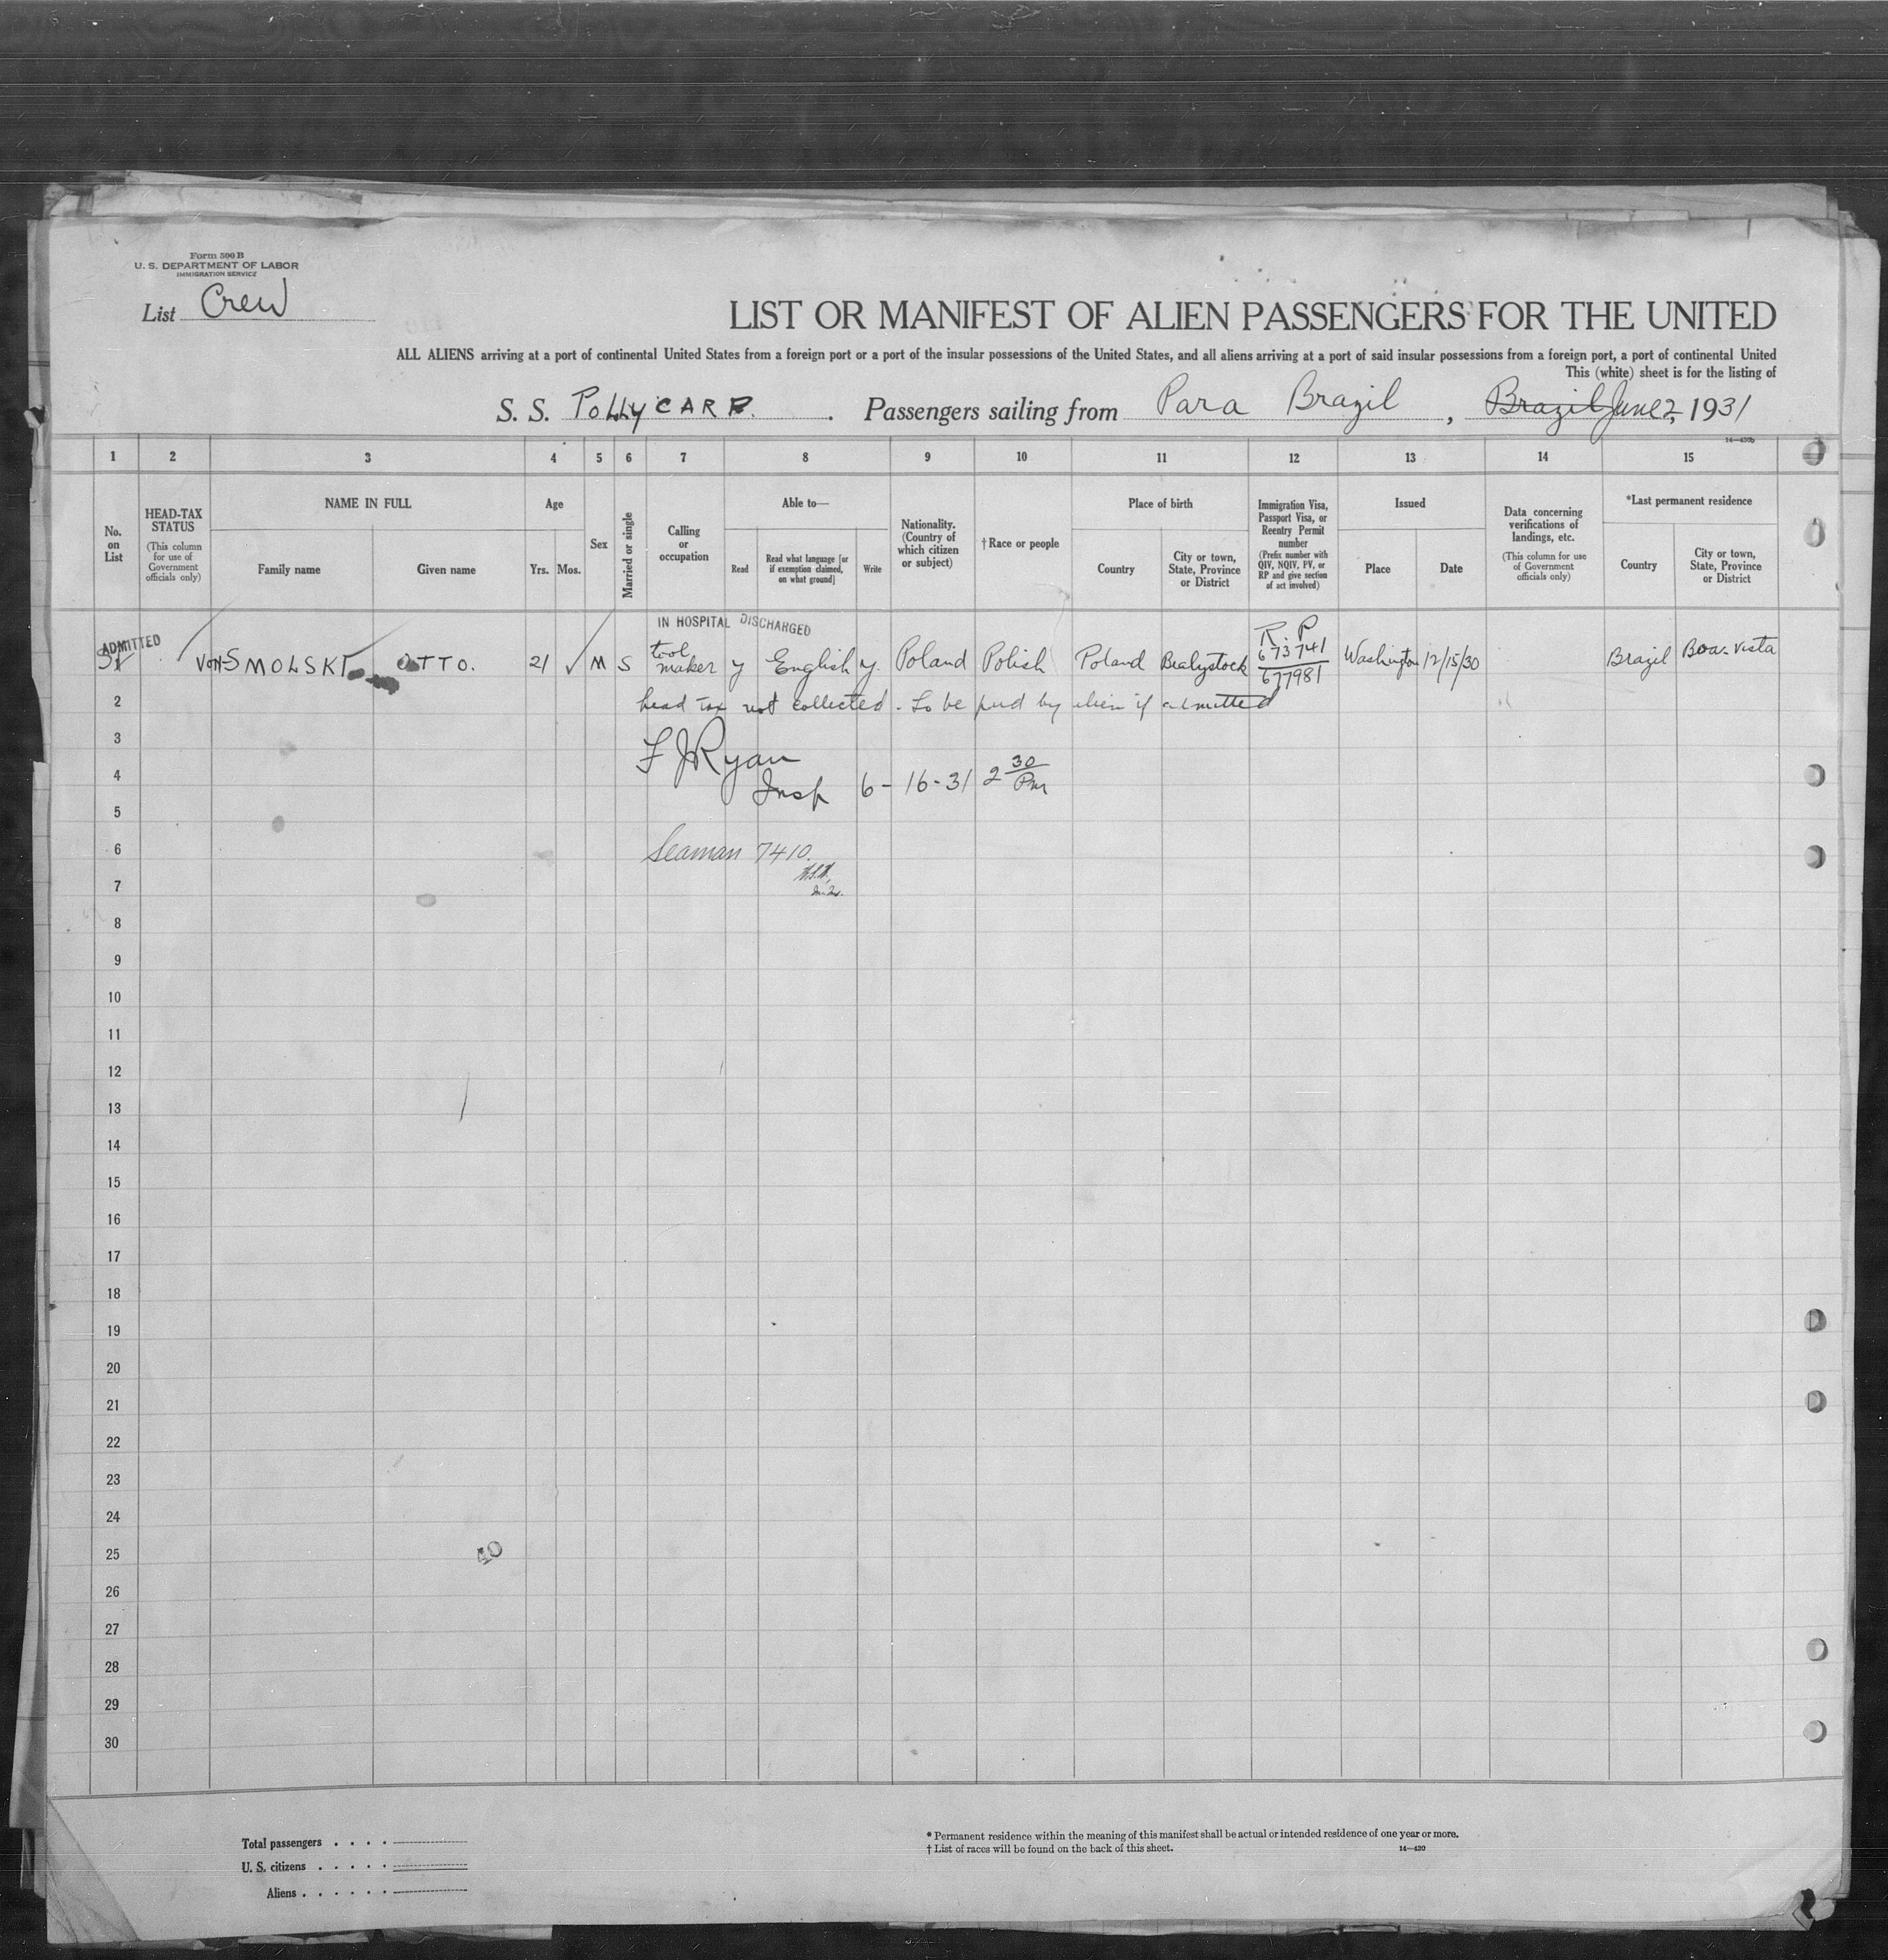 Form 500 B
U. S. DEPARTMENT OF LABOR
IMMIGRATION SERVICE
List Crew
LIST OR MANIFEST OF ALIEN PASSENGERS FOR THE UNITED
ALL ALIENS arriving at a port of continental United States from a foreign port or a port of the insular possessions of the United States, and all aliens arriving at a port of said insular possessions from a foreign port, a port of continental United
This (white) sheet is for the listing of
S. S. POLLYCARP. Passengers sailing from Para Brazil, Brazil June 2, 1931
14—430b
1 2 3 4 5 6 7 8 9 10 11 12 13 14 15
No. on List
HEAD-TAX STATUS
(This column for use of Government officials only)
NAME IN FULL
Family name
Given name
Age
Yrs. Mos.
Sex
Married or single
Calling or occupation
Able to—
Read
Read what language [or if exemption claimed, on what ground]
Write
Nationality. (Country of which citizen or subject)
†Race or people
Place of birth
Country
City or town, State, Province or District
Immigration Visa, Passport Visa, or Reentry Permit number
(Prefix number with QIV, NQIV, PV, or RP and give section of act involved)
Issued
Place
Date
Data concerning verifications of landings, etc.
(This column for use of Government officials only)
*Last permanent residence
Country
City or town, State, Province or District
IN HOSPITAL DISCHARGED
ADMITTED
VON SMOLSKI OTTO. 21 M S tool maker y English y. Poland Polish Poland Bialystock R.P 673741 677981 Washington 12/15/30 Brazil Boa-Vista
2 head tax not collected. To be paid by alien if admitted
3 F J Ryan
4 Insp 6-16-31 2 30 Pm
5
6 Seaman 7410.
7
8
9
10
11
12
13
14
15
16
17
18
19
20
21
22
23
24
25 40
26
27
28
29
30
Total passengers . . . .
U. S. citizens . . . . .
Aliens . . . . . .
* Permanent residence within the meaning of this manifest shall be actual or intended residence of one year or more.
† List of races will be found on the back of this sheet.
14—430